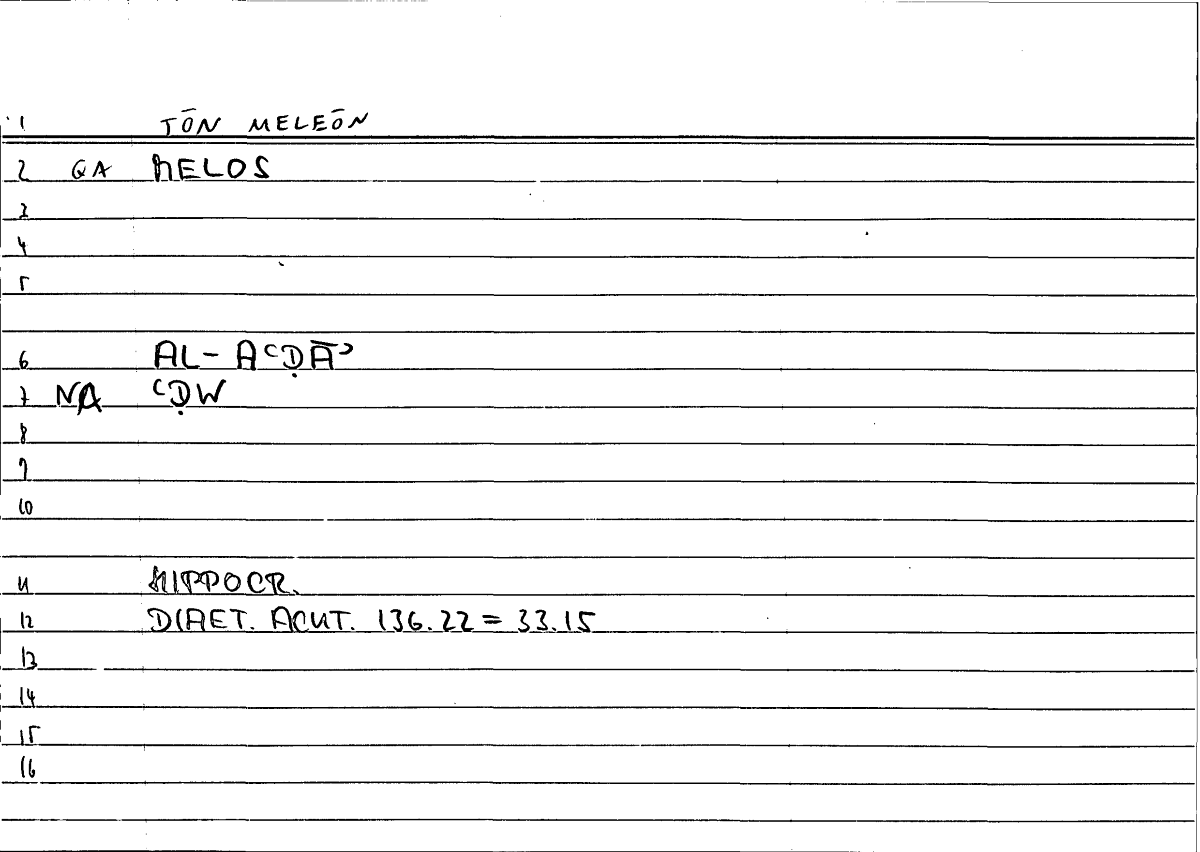 1 TŌN MELEŌN
2 GA MELOS
3
4
5
6 AL-AʿḌĀʾ
7 NA ʿḌW
8
9
10
11 HIPPOCR.
12 DIAET. ACUT. 136.22 = 33.15
13
14
15
16